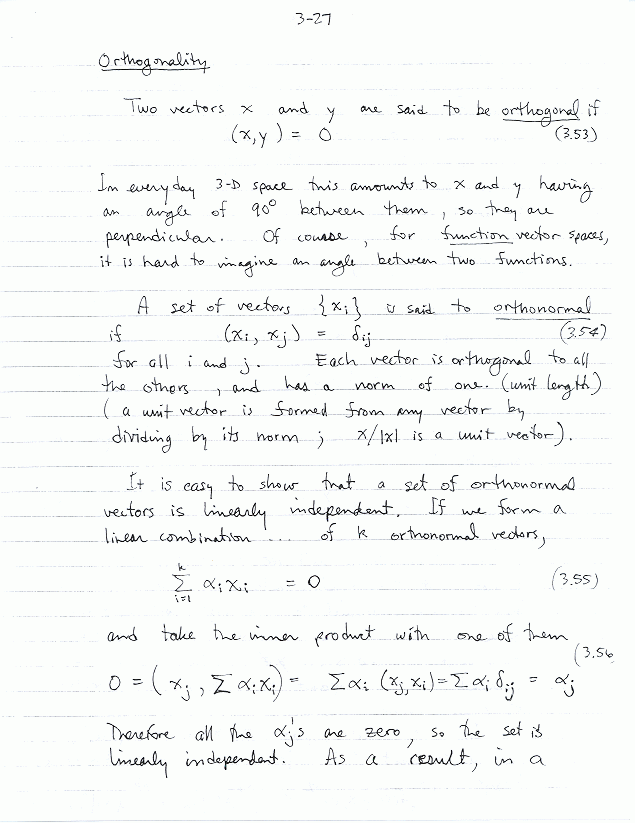 3-27
Orthogonality
Two vectors x and y are said to be orthogonal if
(x,y) = 0 (3.53)
In everyday 3-D space this amounts to x and y having
an angle of 90° between them, so they are
perpendicular. Of course, for function vector spaces,
it is hard to imagine an angle between two functions.
A set of vectors {xi} is said to orthonormal
if (xi, xj) = δij (3.54)
for all i and j. Each vector is orthogonal to all
the others, and has a norm of one. (unit length)
(a unit vector is formed from any vector by
dividing by its norm; x/|x| is a unit vector).
It is easy to show that a set of orthonormal
vectors is linearly independent. If we form a
linear combination ... of k orthonormal vectors,
k
Σ αi xi = 0 (3.55)
i=1
and take the inner product with one of them
(3.56
0 = (xj, Σ αi xi) = Σ αi (xj, xi) = Σ αi δij = αj
Therefore all the αj's are zero, so the set is
linearly independent. As a result, in a